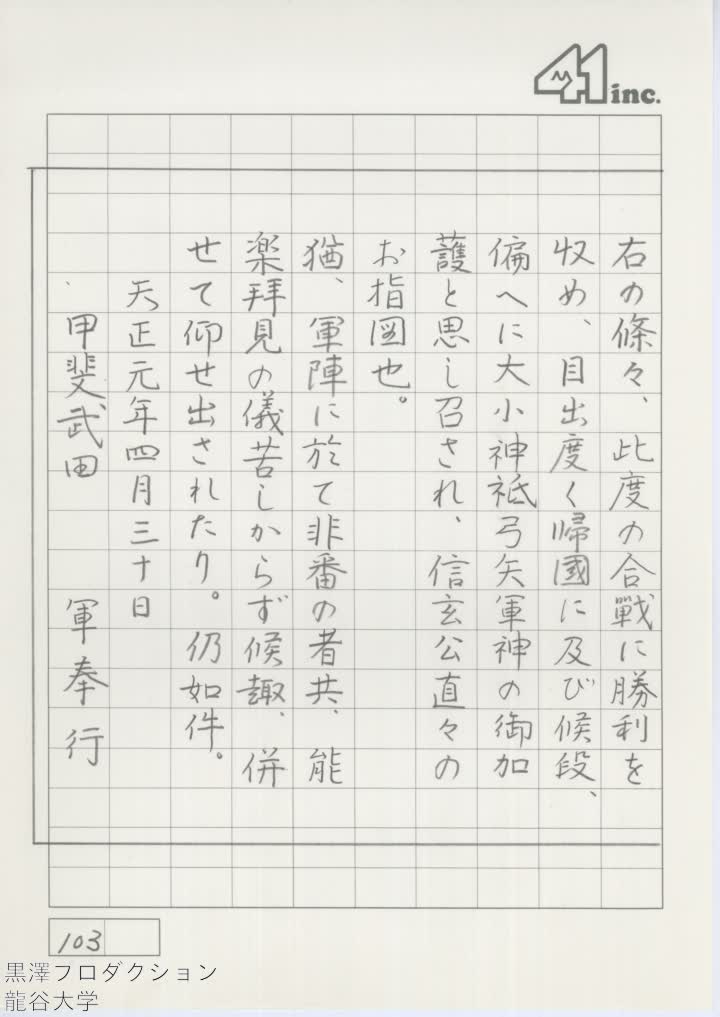 41 inc.
右の條々、此度の合戰に勝利を
収め、目出度く帰國に及び候段、
偏へに大小神祇弓矢軍神の御加
護と思し召され、信玄公直々の
お指図也。
猶、軍陣に於て非番の者共、能
楽拝見の儀苦しからず候趣、併
せて仰せ出されたり。仍如件。
天正元年四月三十日
甲斐武田　軍奉行
103
黒澤プロダクション
龍谷大学